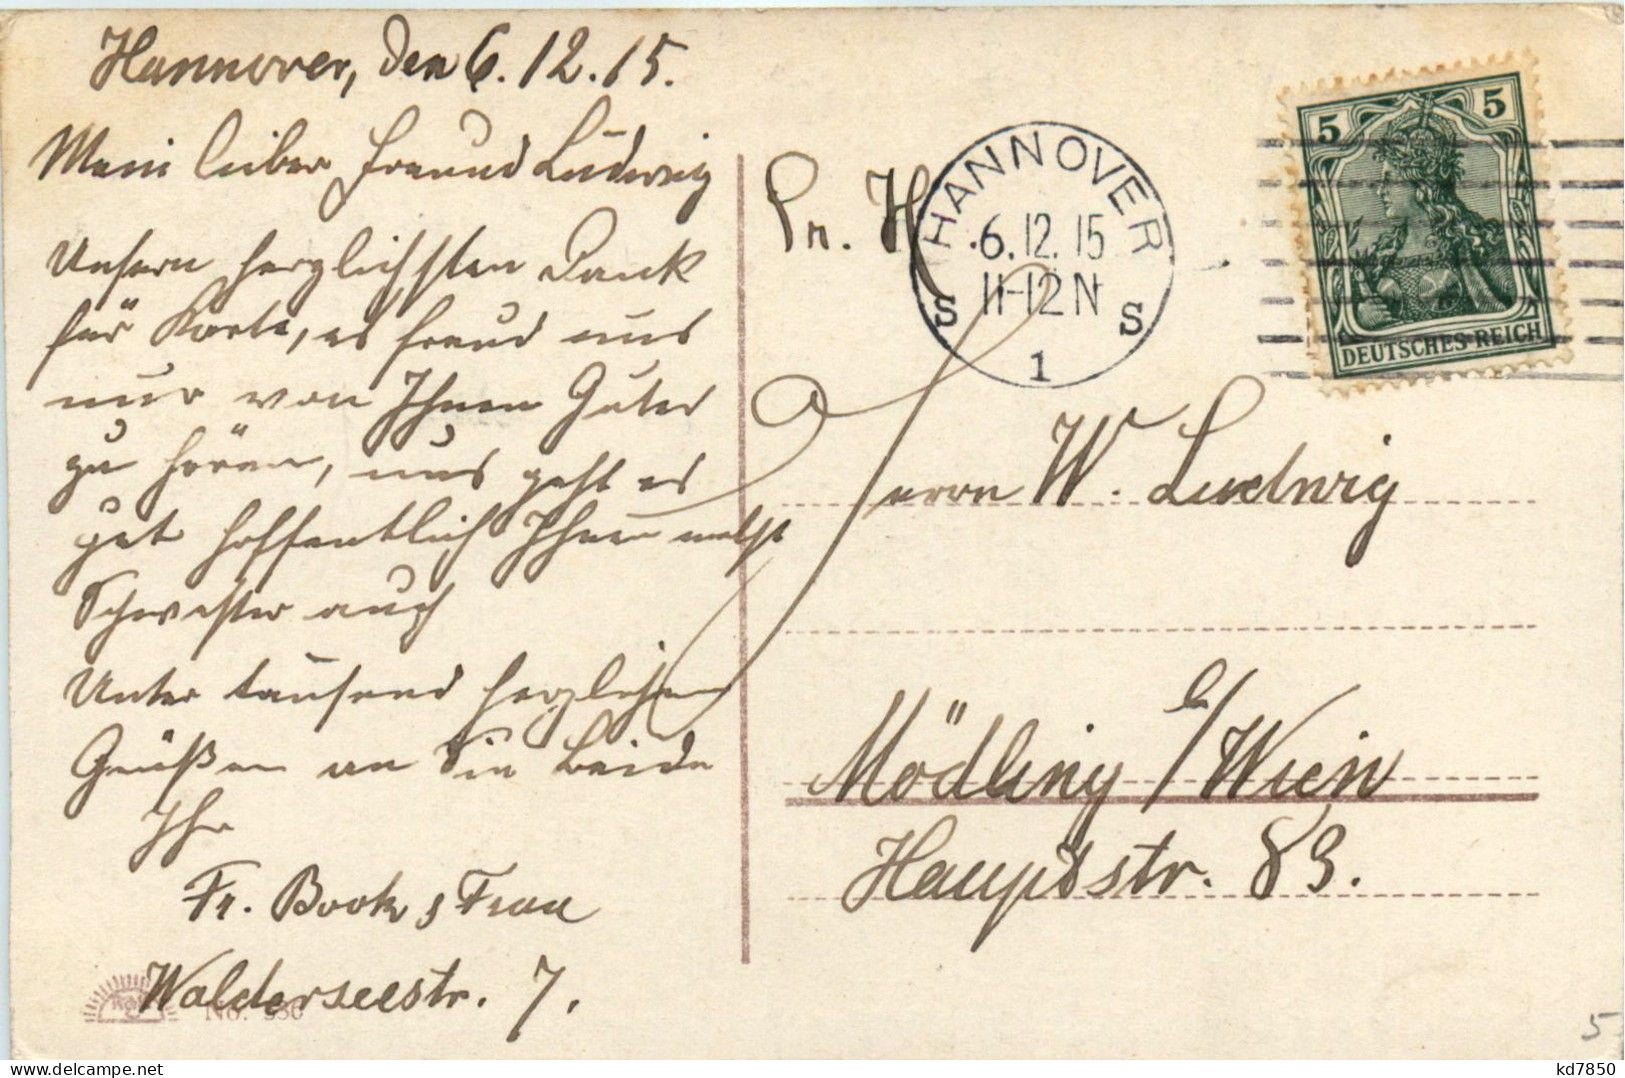 Hannover, den 6.12.15.
Mein lieber Freund Ludwig
Unsern herzlichsten Dank
für Karte, es freud uns
nur von Ihnen Gutes
zu hören, uns geht es
gut hoffentlich Ihnen nebst
Schwester auch
Unter tausend herzlichen
Grüßen an Sie beide
Ihr
Fr. Book & Frau
Walderseestr. 7.
No. 330
HANNOVER
6.12.15
11-12 N
S S
1
5 5
DEUTSCHES REICH
Herrn W. Ludwig
Mödling b/Wien
Hauptstr. 83.
5
kd7850